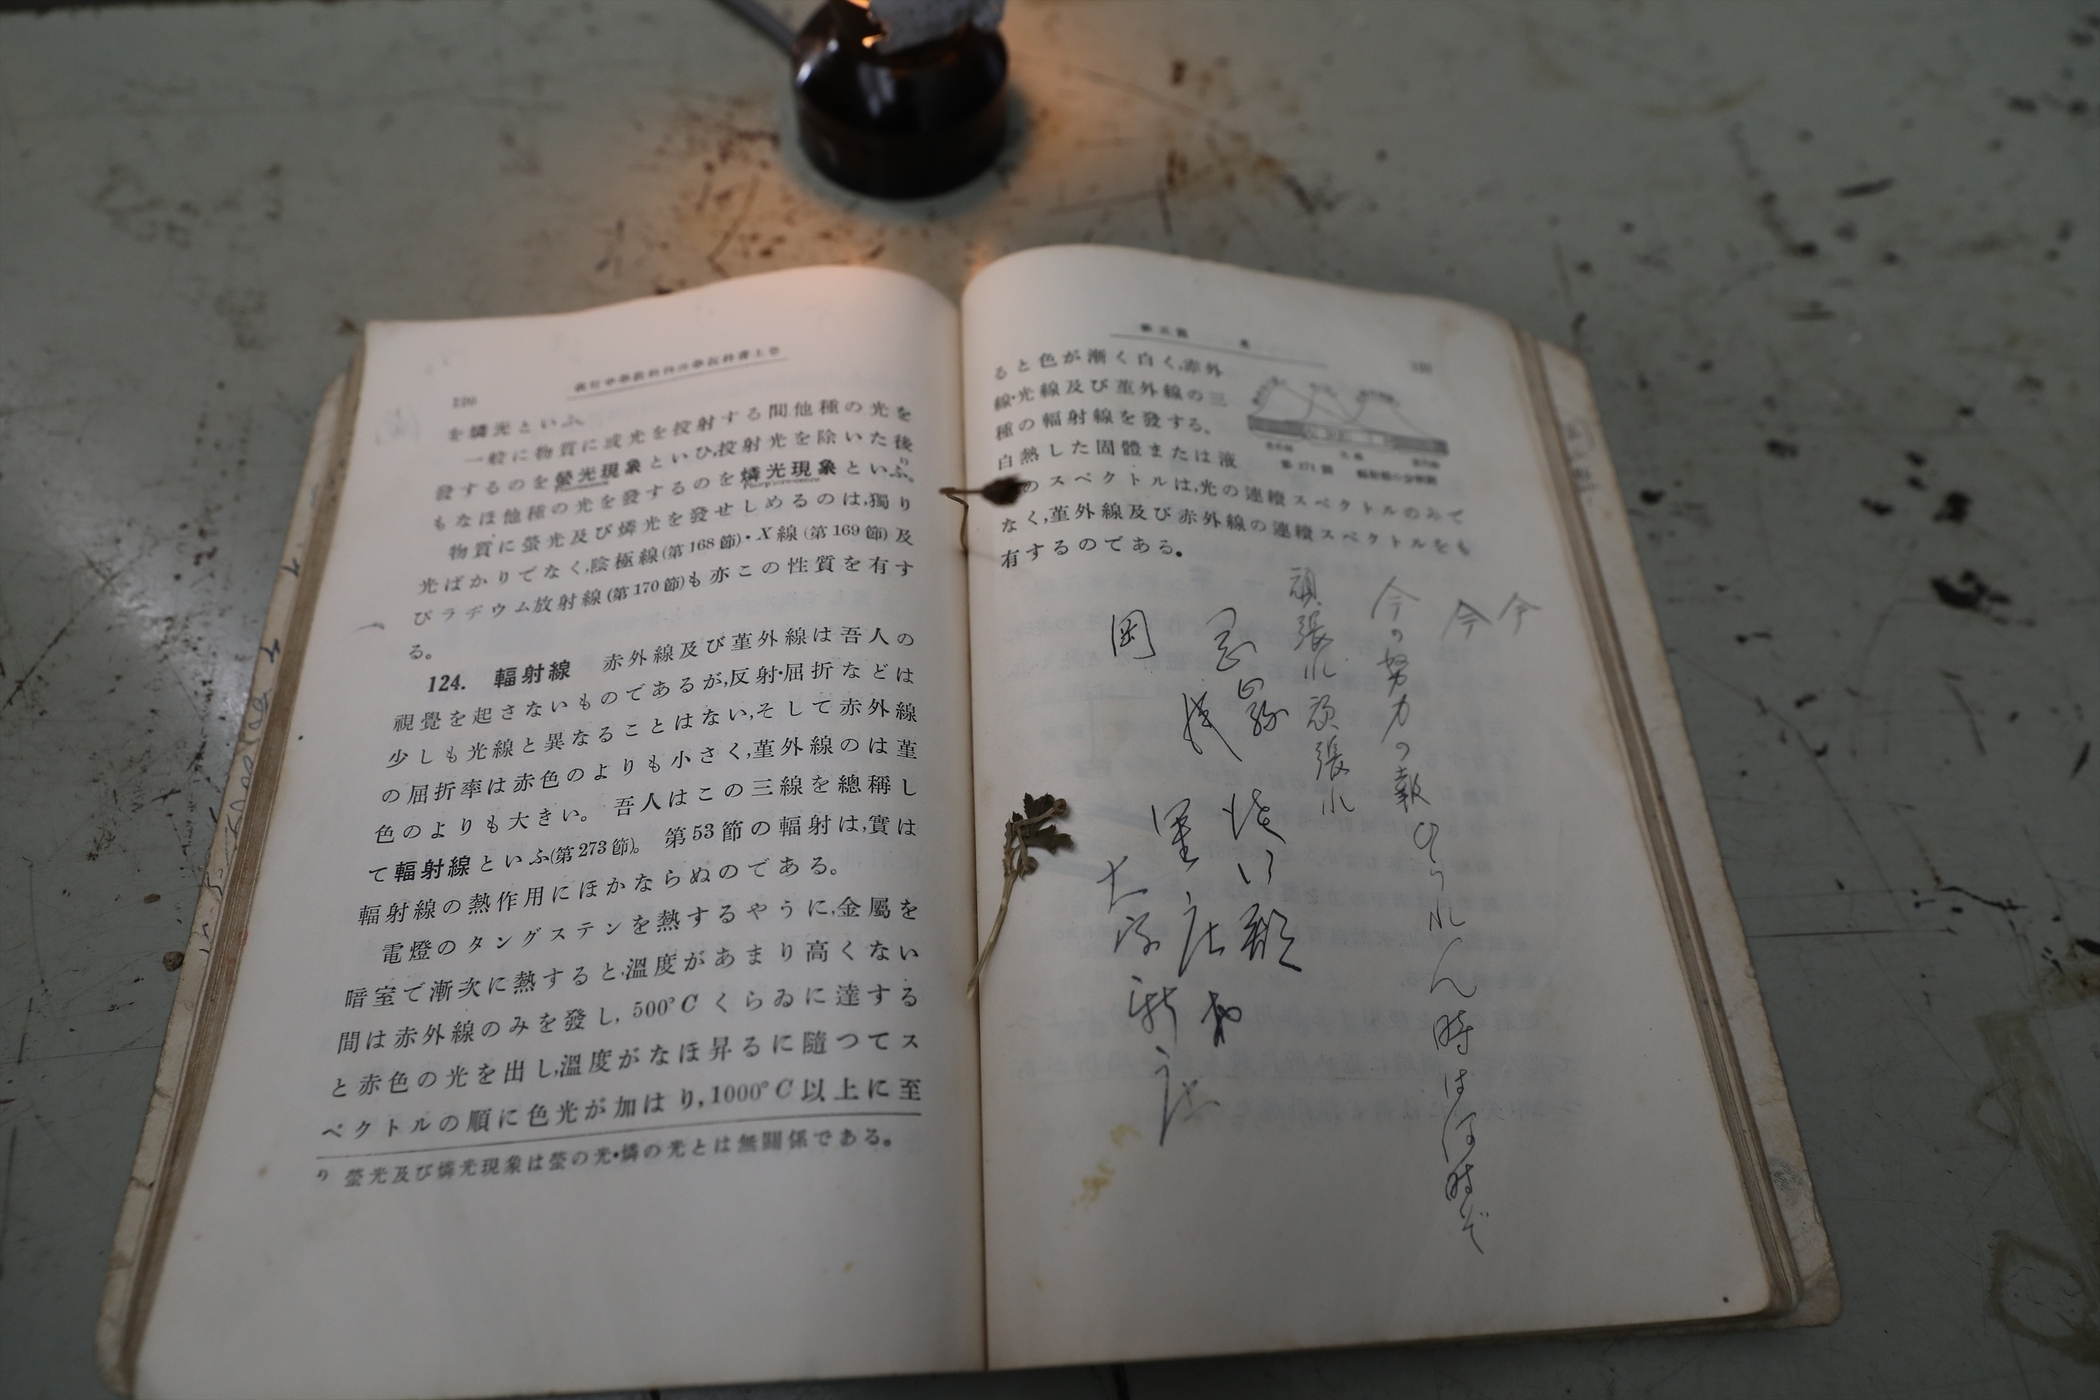 220
を燐光といふ。
一般に物質に或光を投射する間他種の光を
發するのを螢光現象といひ,投射光を除いた後
もなほ他種の光を發するのを燐光現象といふ。
物質に螢光及び燐光を發せしめるのは,獨り
光ばかりでなく,陰極線(第168節)・X線(第169節)及
びラヂウム放射線(第170節)も亦この性質を有す
る。
124. 輻射線 赤外線及び菫外線は吾人の
視覺を起さないものであるが,反射・屈折などは
少しも光線と異なることはない,そして赤外線
の屈折率は赤色のよりも小さく,菫外線のは菫
色のよりも大きい。 吾人はこの三線を總稱し
て輻射線といふ(第273節)。 第53節の輻射は,實は
輻射線の熱作用にほかならぬのである。
電燈のタングステンを熱するやうに,金屬を
暗室で漸次に熱すると,溫度があまり高くない
間は赤外線のみを發し, 500°C くらゐに達する
と赤色の光を出し,溫度がなほ昇るに隨つてス
ペクトルの順に色光が加はり,1000°C 以上に至
螢光及び燐光現象は螢の光・燐の光とは無關係である。
ると色が漸く白く,赤外
線・光線及び菫外線の三
種の輻射線を發する。
白熱した固體または液
のスペクトルは,光の連續スペクトルのみで
なく,菫外線及び赤外線の連續スペクトルをも
有するのである。
第 171 圖 輻射線の分析圖
今 今
今の努力の報ひられん時は何時ぞ
頑張れ頑張れ